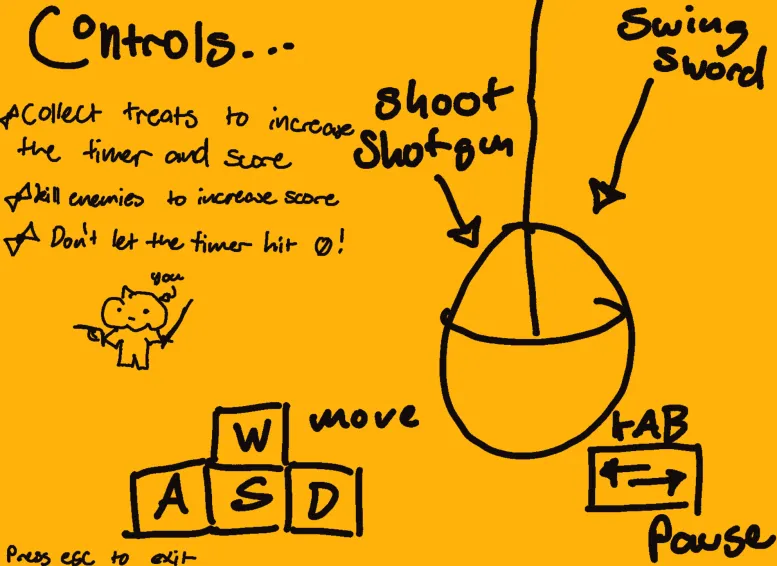 Controls...
Collect treats to increase
the timer and score
kill enemies to increase score
Don't let the timer hit 0!
you
shoot
shotgun
swing
sword
W
move
A S D
tAB
Pause
Press esc to exit